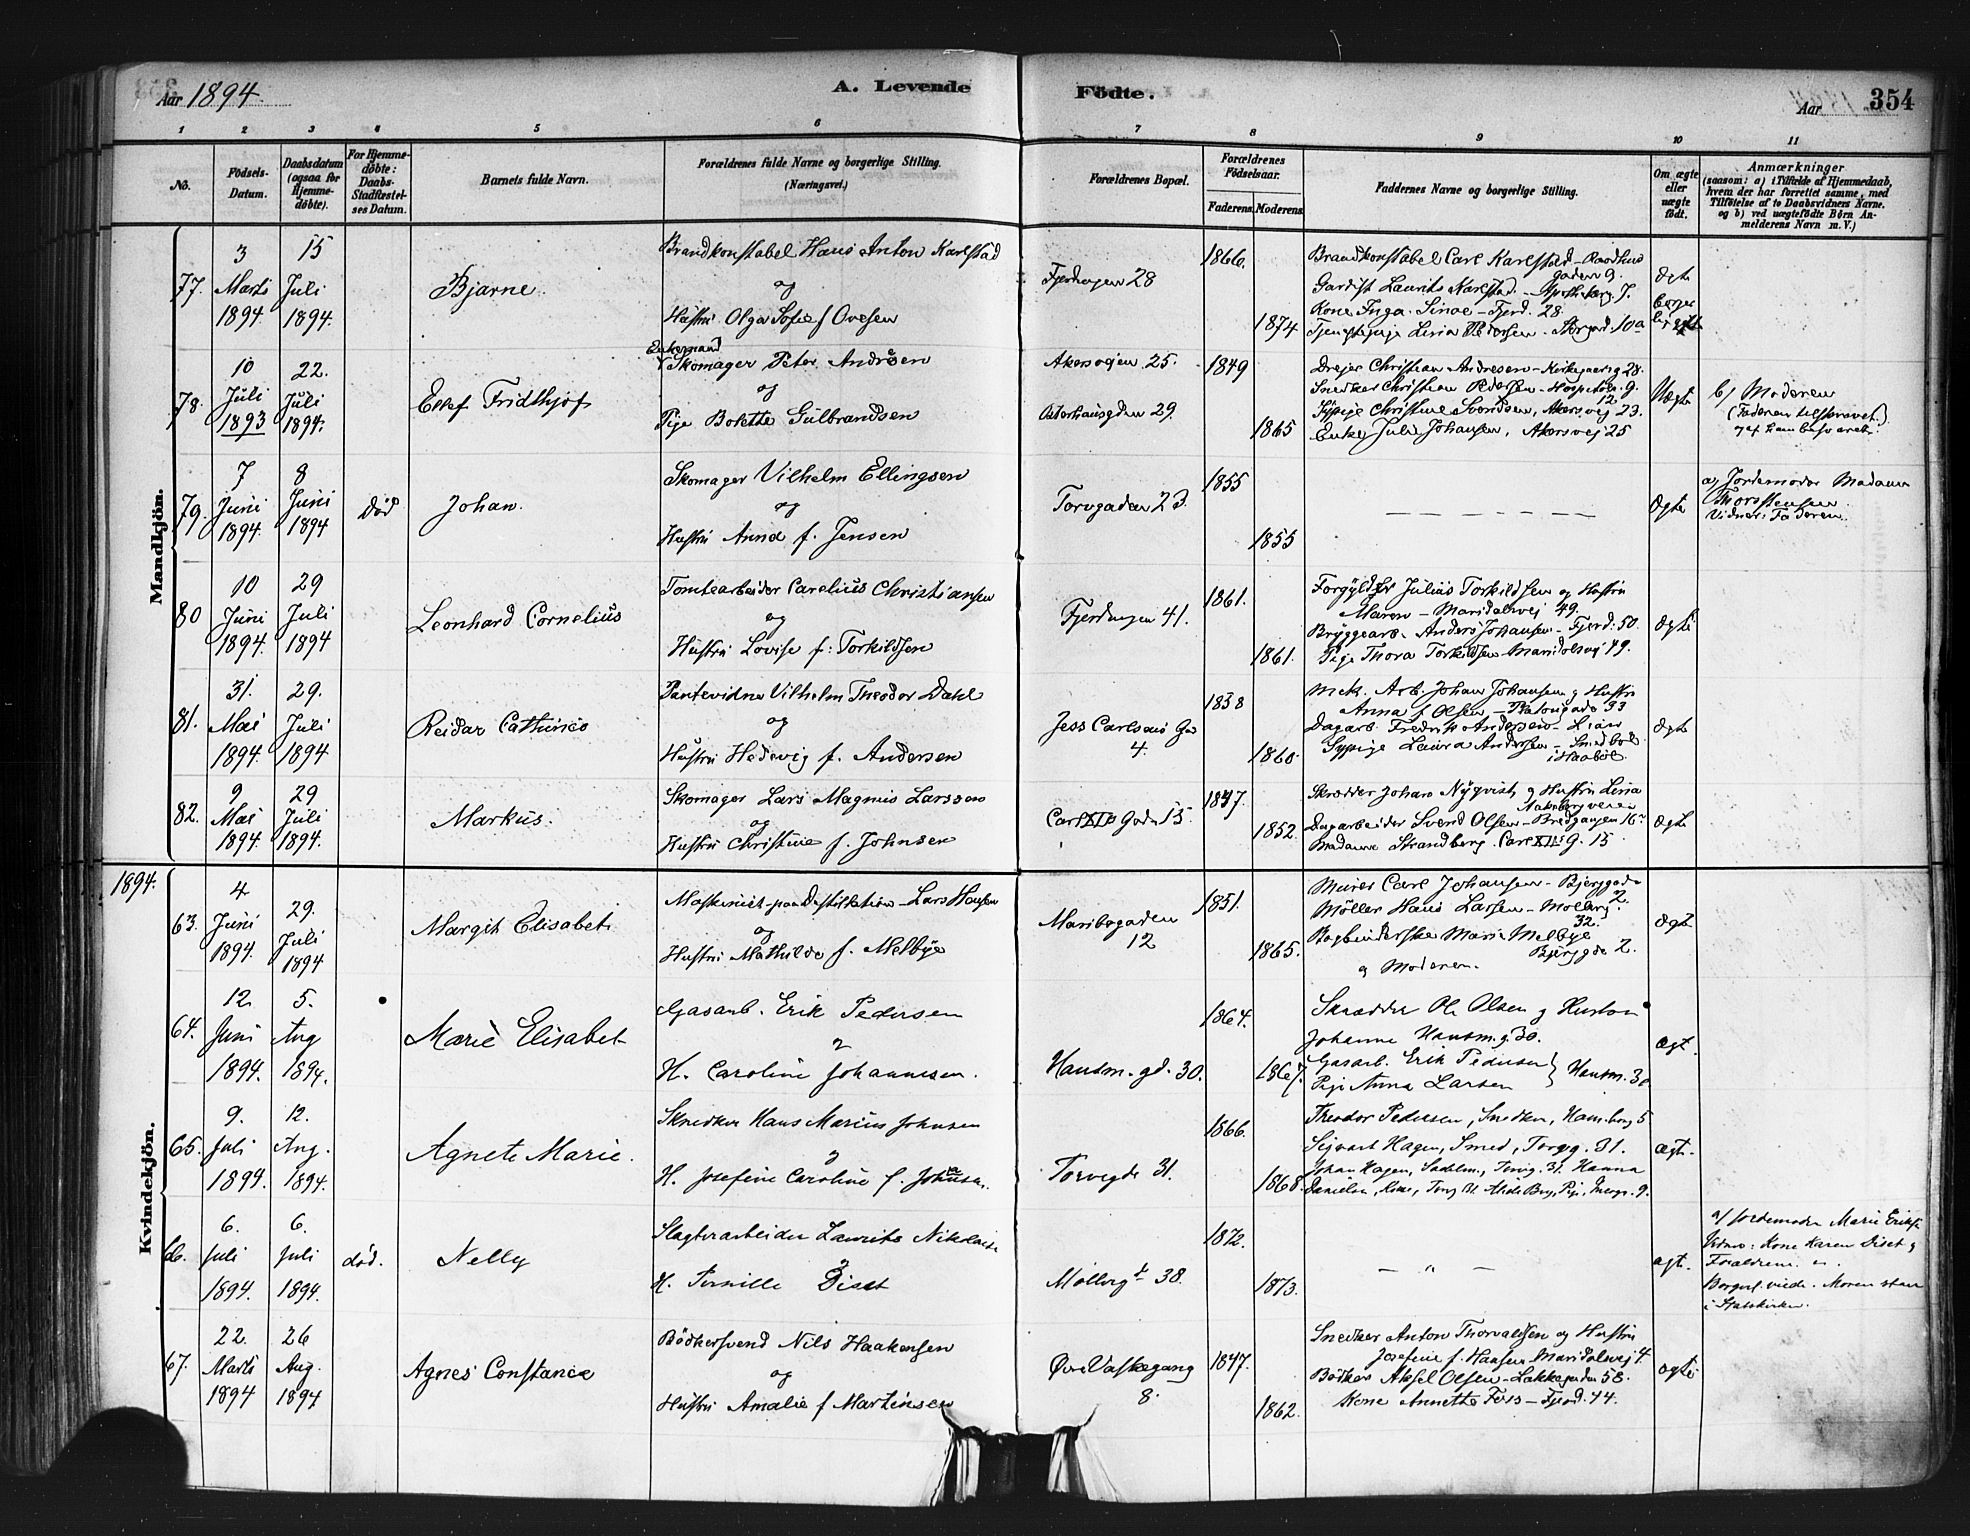 Aar 1894.
A. Levende Födte.
Aar
354
1 2 3 4 5 6 7 8 9 10 11
No.
Födsels-Datum.
Daabsdatum (ogsaa for Hjemme-döbte).
For Hjemme-döbte: Daabs-Stadfæstel-ses Datum.
Barnets fulde Navn.
Forældrenes fulde Navne og borgerlige Stilling.
(Næringsvei.)
Forældrenes Bopæl.
Forældrenes Födselsaar.
Faderens. Moderens.
Faddernes Navne og borgerlige Stilling.
Om ægte eller uægte födt.
Anmærkninger
(saasom: a) i Tilfælde af Hjemmedaab, hvem der har forrettet samme, med Tilföielse af to Daabsvidners Navne. og b) ved uægtefödte Börn An-melderens Navn m. V.)
Mandkjön.
77.
3 Marts 1894.
15 Juli 1894.
Bjarne.
Brandkonstabel Hans Anton Karlstad
og
Hustru Olga Sofie f Ovesen
Fjerdingen 28
1866.
1874
Brandkonstabel Carl Karlstad - Raadhus
gaden 9.
Gardist Laurits Karlstad - Apothekerg. 7.
Kone Inga - Fjerd. 28.
Ægte
78.
10 Juli 1893
22. Juli 1894.
Ellef Fridthjof
Enkemand
Skomager Peter Andresen
og
Pige Bolette Gulbrandsen
Akersvejen 25.
29.
1849
1865
Drejer Christian Andresen - 28.
Snedker Christian Pedersen - 9.
Sypige Christine Svendsen, Akersvej 23.
Enke Julie Johansen, Akersvej 25
Uægte
b) Moderen
79.
7 Juni 1894.
8 Juni 1894
død
Johan.
Skomager Vilhelm Ellingsen
og
Hustru Anna f. Jensen
Torvgaden 23.
1855
1855
Ægte
a) Jordemoder Madame
Thorstensen
Vidner: Faderen.
80
10 Juni 1894.
29 Juli 1894
Leonhard Cornelius
Tomtearbeider Carelius Christiansen
og
Hustru Lovise f: Torkildsen
Fjerdingen 41.
1861.
1861.
Forgylder Julius Torkildsen og Hustru
Maren - Maridalsvej 49.
Bryggearb. Anders Johansen - Fjerd: 50.
Pige Thora Torkildsen Maridalsvej 49.
Ægte
81.
31. Mai 1894.
29. Juli 1894
Reidar Cathinius
Pantevidne Vilhelm Theodor Dahl
og
Hustru Hedevig f. Andersen
Jess Carlsens Gd
4.
1838
1860.
Mek. Arb. Johan Johansen og Hustru
Anna f Olsen - 33
Dagarb. Fredrik Andersen -
Sypige Laura Andersen -
Ægte
82.
9 Mai 1894.
29 Juli 1894.
Markus.
Skomager Lars Magnus Larssen
og
Hustru Christine f. Johnsen
Carl XIIs Gade 15.
1847.
1852.
Skrædder Johan Nyqvist og Hustru
Dagarbeider Svend Olsen - Bredgangen 16
Madame Strandberg. Carl XIIs g. 15
Ægte
1894.
Kvindekjön.
63.
4 Juni 1894.
29. Juli 1894
Margit Elisabet
Maskinist paa Destillation - Lars Hansen
og
Hustru Mathilde f. Melbye
Maribogaden
12
1851.
1865.
Murer Carl Johansen - Bjerggade
2.
Møller Hans Larsen - Møllerg.
32.
Bogbinderske Marie Melbye
Bjerggde 2.
og Moderen.
Ægte
64.
12. Juni 1894.
5. Aug 1894.
Marie Elisabet
Gasarb. Erik Pedersen
og
H. Caroline Johannesen.
Hausm. gd. 30.
1864.
1867.
Skrædder Ole Olsen og Hustru
Johanne Hausm.g. 30.
Gasarb. Erik Pedersen
Pige Anna Larsen
Hausm. 30
Ægt.
65.
9. Juli 1894.
12. Aug. 1894.
Agnete Marie.
Snedker Hans Marius Johnsen
og
H. Josefine Caroline f. Johnsen.
Torvegde 31.
1866.
1868.
Theodor Pedersen, Snedker, 5
Sigvart Hagen, Smed, Torvg. 31.
Johan Hagen, Sadelm., Torvg. 31. Hanna
Danielsen, Kone,
ægt.
66.
6. Juli 1894.
6. Juli 1894.
død.
Nelly
Slagterarbeider Laurits Nikolaisen
og
H. Pernille Diset
Møllerg 38.
1872.
1873.
— " —
ægt.
a/ Jordemoder Marie Eriks.
Vidner: Kone Karen Diset og
Forældrene.
Borgerl. viede. Moren staar
i Statskirken.
67.
22. Marts 1894
26 Aug. 1894
Agnes Constance
Bödkersvend Nils Haakensen
og
Hustru Amalie f Martinsen
Øvre Vaskegang
8.
1847.
1862.
Snedker Anton Thorvaldsen og Hustru
Josefine f. Hansen Maridalsvej 4.
Bødker Aksel Olsen - Lakkegaden 58.
Kone Annette Foss - Fjerd. 44.
ægte